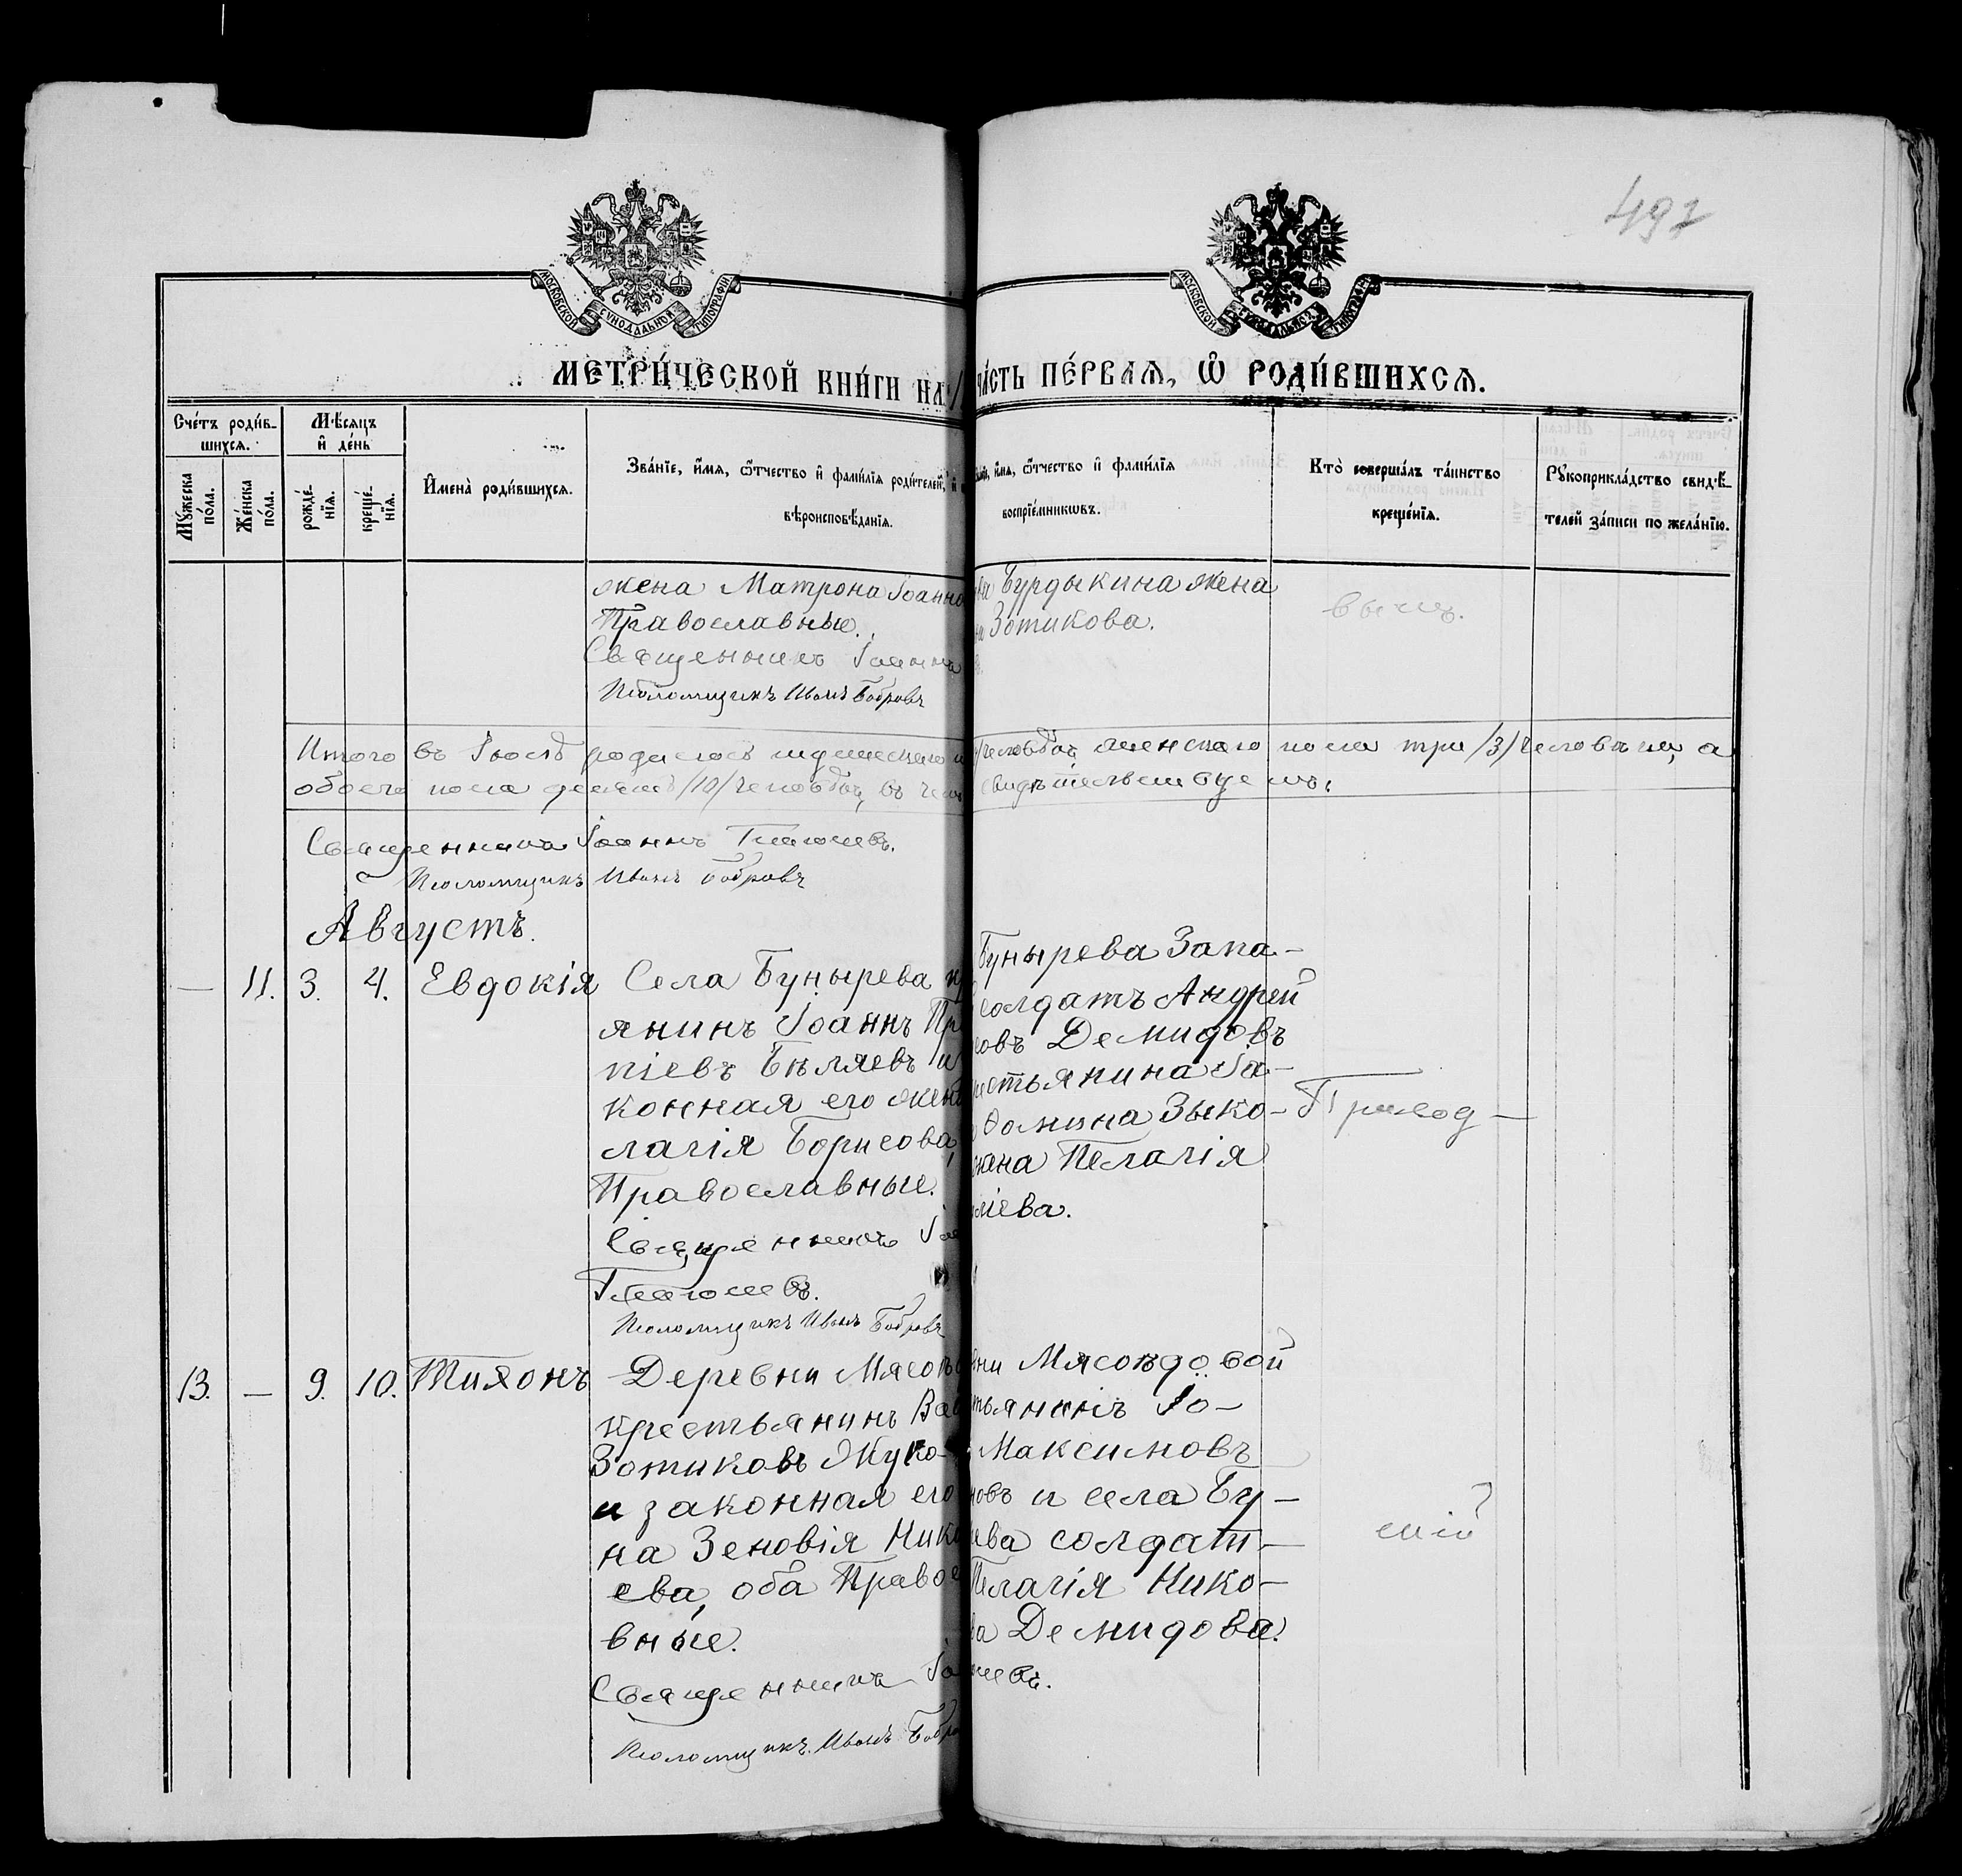 497
МОСКОВСКОЙ СѴНОДАЛЬНОЙ ТИПОГРАФІИ
МОСКОВСКОЙ СѴНОДАЛЬНОЙ ТИПОГРАФІИ
МЕТРИ́ЧЕСКОЙ КНИ́ГИ НА
ЧА́СТЬ ПЕ́РВАЯ, Ѿ РОДИ́ВШИХСЯ.
Сче́тъ роди́в-
шихся.
Му́жеска
по́ла.
Же́нска
по́ла.
Мѣ́сяцъ
и҆ де́нь
рожде́-
нїя.
креще́-
нїя.
И҆мена̀ роди́вшихся.
Зва́нїе, и҆́мя, ѻ҆́тчество и҆ фами́лїя роди́телей,
вѣроисповѣ́данїя.
и҆́мя, ѻ҆́тчество и҆ фами́лїя
воспрїе́мникѡвъ.
Кто̀ соверша́лъ та́инство
креще́нїя.
Рꙋкоприкла́дство свидѣ́-
телей за́писи по жела́нїю.
жена Матрона Іоанно
Православные.
Священникъ Іоаннъ
Псаломщикъ Иванъ Бобровъ
Бурдыкина жена
Зотикова.
Итого въ Іюлѣ родилось мужескаго
женскаго пола три /3/ человѣка, а
обоего пола /10/ человѣкъ, въ чемъ
свидѣтельствуемъ:
Священникъ Іоаннъ
Псаломщикъ Иванъ Бобровъ
Августъ.
— 11. 3. 4. Евдокія
Села Бунырева
янинъ Іоаннъ Пр
піевъ Бѣляевъ и
конная его жена
лагія Борисова,
Православные.
Священникъ Іоа
Псаломщикъ Иванъ Бобровъ
Бунырева Запа-
солдатъ Андрей
овъ Демидовъ
естьянина Іа-
Ѳомина Зыко-
жена Пелагія
ліева.
Приход-
13. — 9. 10. Тихонъ
Деревни Мясоѣ
крестьянинъ Ва
Зотиковъ Жуко-
и законная его
на Зеновія Ник
ева, оба Правос
вные.
Священникъ Іо
Псаломщикъ Иванъ Бобро
вни Мясоѣдовой
тьянинъ Іо-
Максимовъ
новъ и села Бу-
ева солдат-
Пелагія Нико-
ва Демидова.
скій